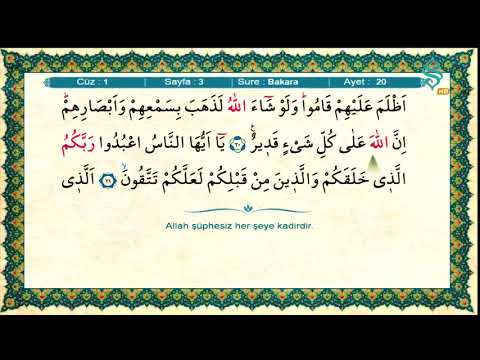 Cüz : 1 Sayfa : 3 Sure : Bakara Ayet : 20
HD
اَظْلَمَ عَلَيْهِمْ قَامُواۜ وَلَوْ شَٓاءَ اللّٰهُ لَذَهَبَ بِسَمْعِهِمْ وَاَبْصَارِهِمْۜ
اِنَّ اللّٰهَ عَلٰى كُلِّ شَيْءٍ قَد۪يرٌ۟ ﴿٢٠﴾ يَٓا اَيُّهَا النَّاسُ اعْبُدُوا رَبَّكُمُ
الَّذ۪ي خَلَقَكُمْ وَالَّذ۪ينَ مِنْ قَبْلِكُمْ لَعَلَّكُمْ تَتَّقُونَۙ ﴿٢١﴾ اَلَّذ۪ي
Allah şüphesiz her şeye kadirdir.